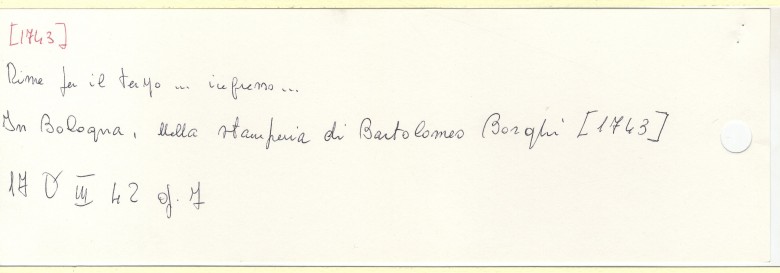 [1743]
Rime per il terzo ... ingresso...
In Bologna, nella stamperia di Bartolomeo Borghi [1743]
17 III 42 op. 7